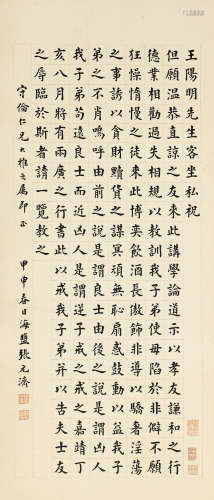 王陽明先生客坐私祝
但願溫恭直諒之友來此講學論道示以孝友謙和之行
德業相勸過失相規以教訓我子弟使毋陷於非僻不願
狂懆惰慢之徒來此博奕飲酒長傲飾非導以驕奢淫蕩
之事誘以貪財黷貨之謀冥頑無恥扇惑鼓動以益我子
弟之不肖嗚呼由前之說是謂良士由後之說是謂凶人
我子弟苟遠良士而近凶人是謂逆子戒之戒之嘉靖丁
亥八月將有兩廣之行書此以戒我子弟并以告夫士友
之辱臨於斯者請一覽教之
守倫仁兄大雅之屬即正
甲申春日海鹽張元濟